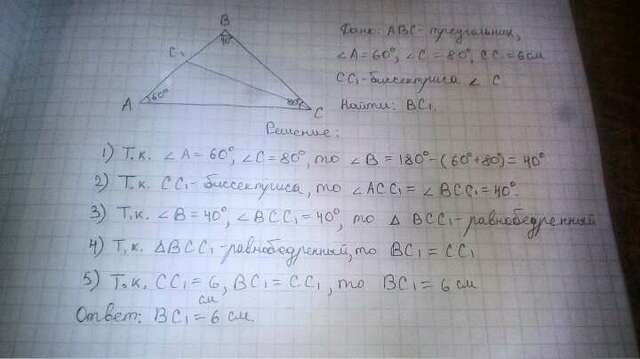 B
40°
C₁
A
60°
80°
C
Дано: ABC - треугольник,
∠A=60°, ∠C=80°, CC₁=6см
CC₁-биссектриса ∠ C
Найти: BC₁.
Решение:
1) Т.к. ∠A=60°, ∠C=80°, то ∠B=180°-(60°+80°)=40°
2) Т.к. CC₁-биссектриса, то ∠ACC₁=∠BCC₁=40°.
3) Т.к. ∠B=40°, ∠BCC₁=40°, то △ BCC₁-равнобедренный
4) Т.к. △BCC₁-равнобедренный, то BC₁=CC₁
5) Т.к. CC₁=6 см, BC₁=CC₁, то BC₁=6 см
Ответ: BC₁=6 см.